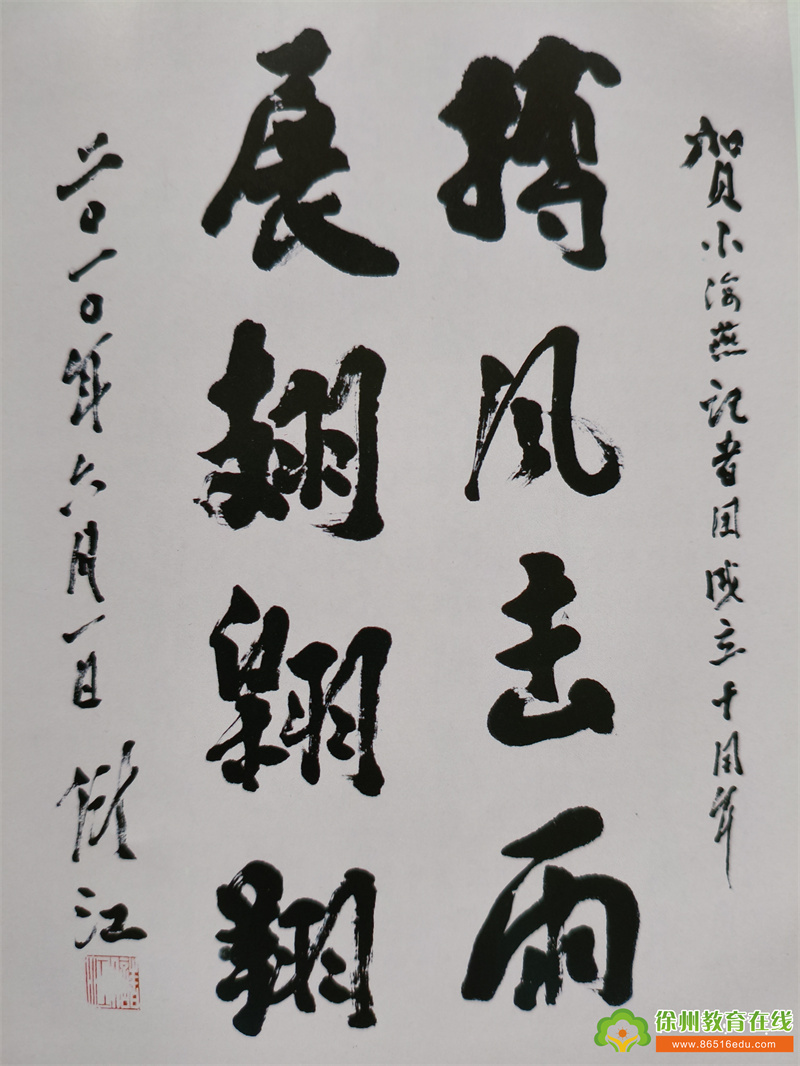 贺小海燕记者团成立十周年
搏风击雨
展翅翱翔
二〇一〇年六月一日 储江
徐州教育在线
www.86516edu.com